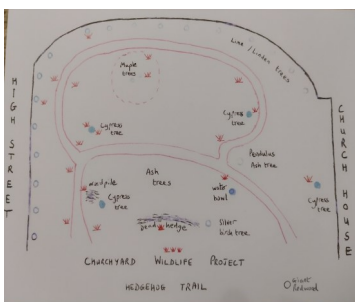 Lime / Linden trees
Maple
trees
HIGH STREET
CHURCH HOUSE
Cypress
tree
Cypress
tree
Pendulus
Ash tree
Ash
trees
woodpile
Cypress
tree
water
bowl
Cypress
tree
dead hedge
Silver
birch tree
CHURCHYARD WILDLIFE PROJECT
HEDGEHOG TRAIL
Giant
Redwood